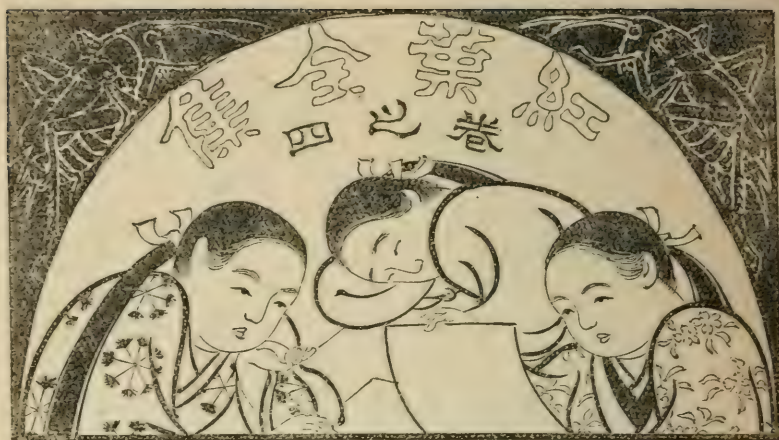 紅葉全集
卷之四